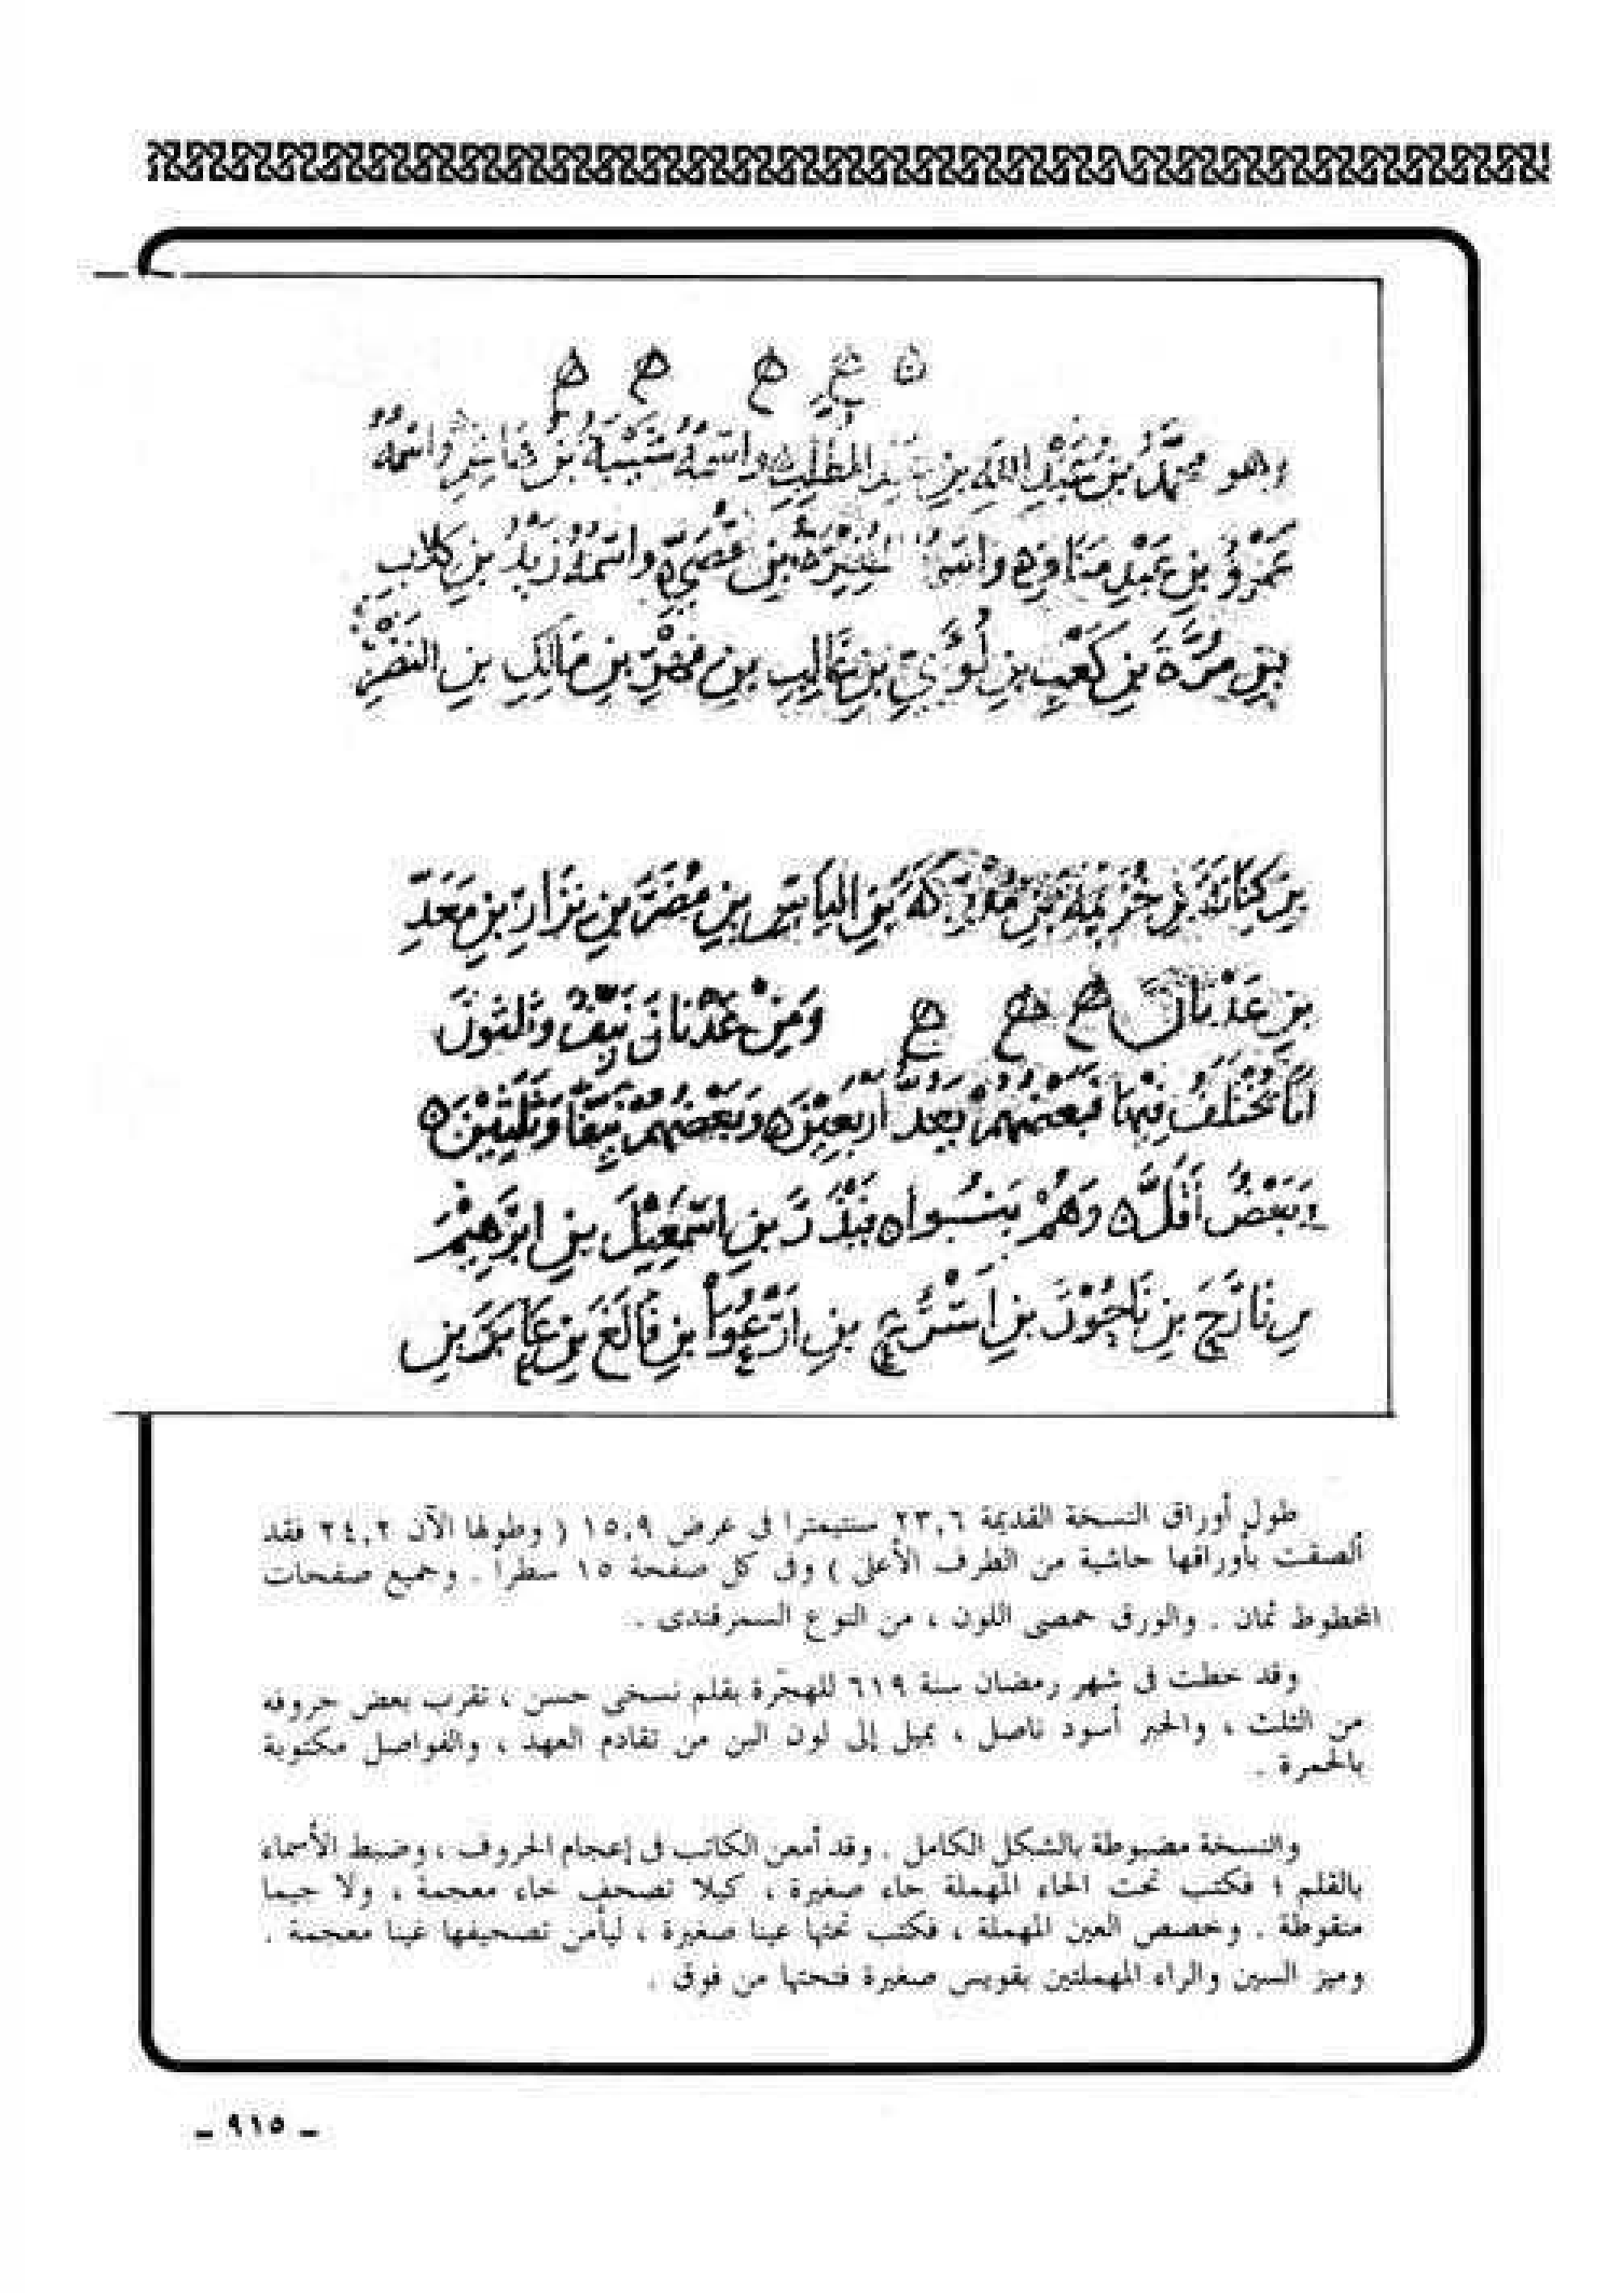 وهو محمد بن عبد الله بن عبد المطلب ه واسمه شيبة بن هاشم واسمه
عمرو بن عبد مناف ه واسمه المغيرة بن قصي ه واسمه زيد بن كلاب
بن مرة بن كعب بن لؤي بن غالب بن فهر بن مالك بن النضر
بن كنانة بن خزيمة بن مدركة بن الياس بن مضر بن نزار بن معد
بن عدنان ومن عدنان نيف وثلثون
ابا مختلف فيها فبعضهم يعد اربعين ه وبعضهم نيفا وثلثين ه
وبعض اقل ه وهم ينسبوا ه بن اسمعيل بن ابرهيم
بن تارح بن ناحور بن اسرع بن ارعوا بن فالغ بن عابر بن
طول أوراق النسخة القديمة ٢٣,٦ سنتيمترا فى عرض ١٥,٩ ( وطولها الآن ٢٤,٢ فقد
ألصقت بأوراقها حاشية من الطرف الأعلى ) وفى كل صفحة ١٥ سطرا . وجميع صفحات
المخطوط ثمان . والورق حمصى اللون ، من النوع السمرقندى .
وقد خطت فى شهر رمضان سنة ٦١٩ للهجرة بقلم نسخى حسن ، تقرب بعض حروفه
من الثلث ، والحبر أسود ناصل ، يميل إلى لون البن من تقادم العهد ، والفواصل مكتوبة
بالحمرة .
والنسخة مضبوطة بالشكل الكامل . وقد أمعن الكاتب فى إعجام الحروف ، وضبط الأسماء
بالقلم ؛ فكتب تحت الحاء المهملة حاء صغيرة ، كيلا تصحف خاء معجمة ، ولا جيما
منقوطة . وخصص العين المهملة ، فكتب تحتها عينا صغيرة ، ليأمن تصحيفها غينا معجمة .
وميز السين والراء المهملتين بقويس صغيرة فتحتها من فوق .
- ٩١٥ -